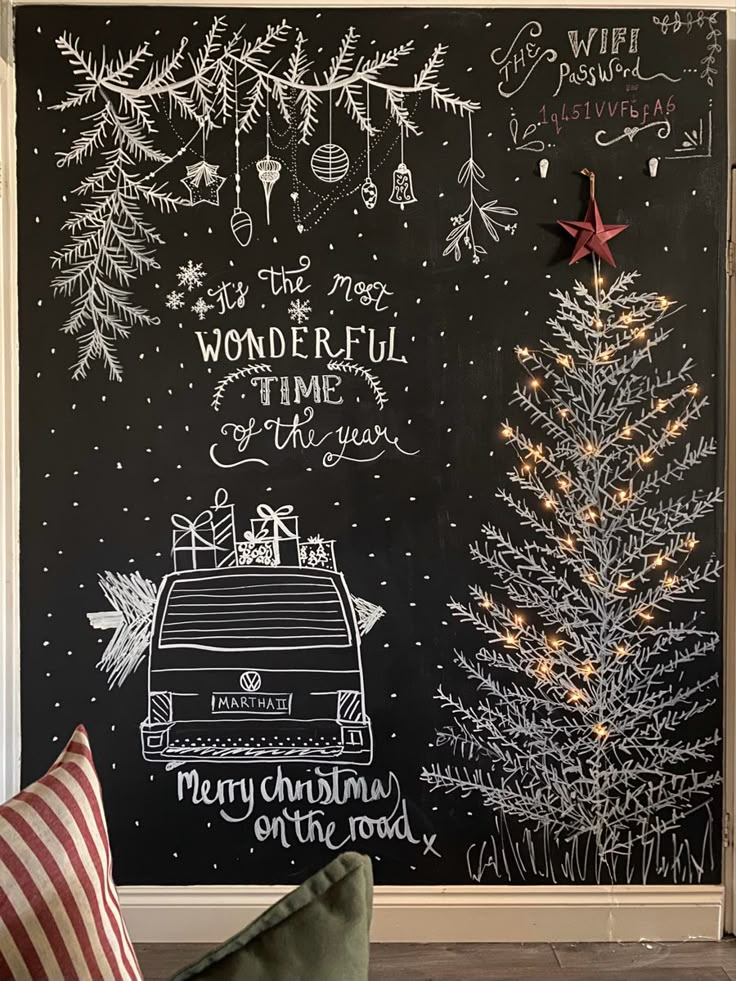 THE WIFI
PASSWORD
1q451VVFbFA6
it's the most
WONDERFUL
TIME
of the year
MARTHA II
Merry christmas
on the road x